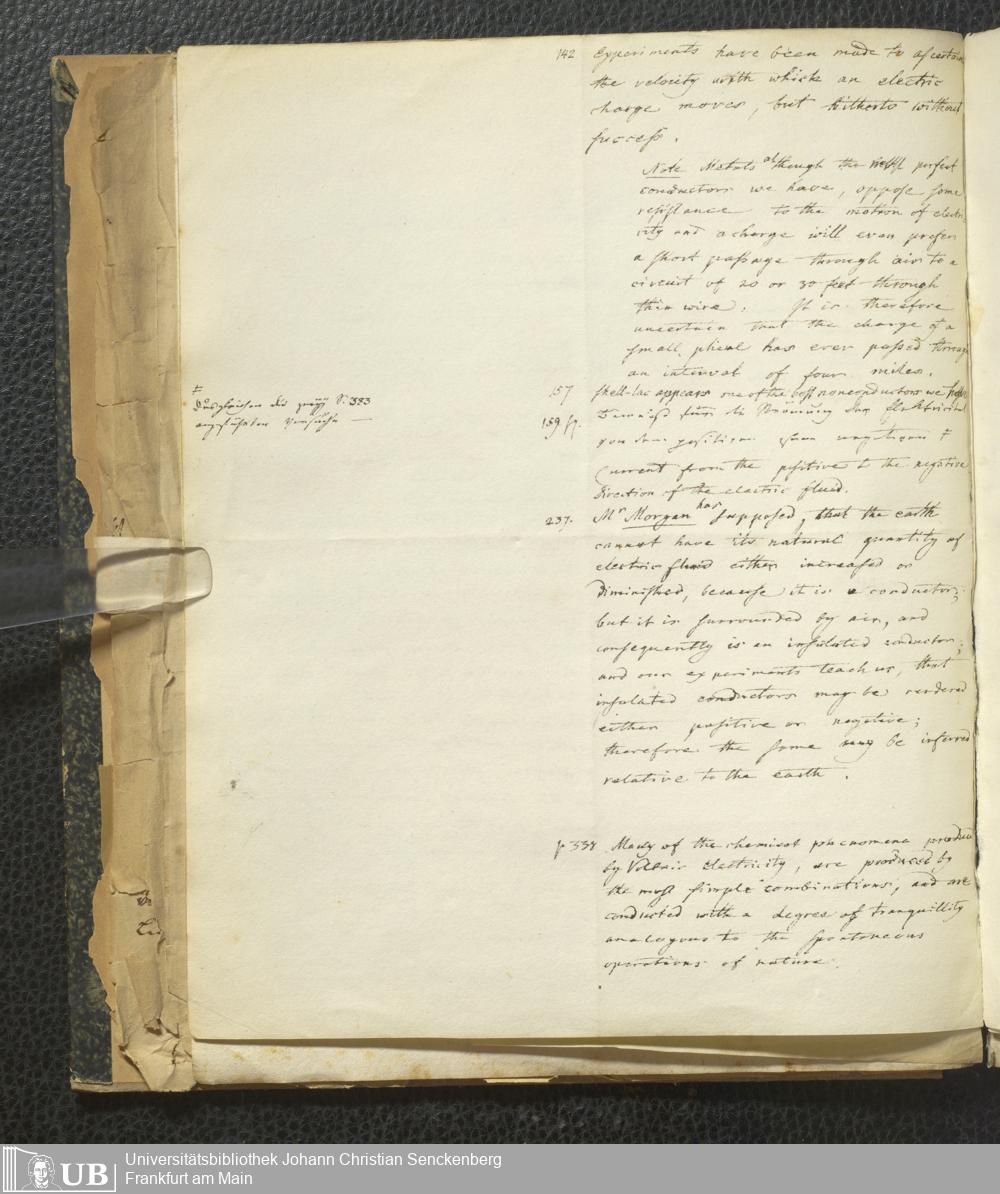 142 Experiments have been made to ascertain
the velocity with which an electric
charge moves, but hitherto without
success.
Note Metals although the most perfect
conductors we have, oppose some
resistance to the motion of electri
city and a charge will even prefer
a short passage through air to a
circuit of 20 or 30 feet through
thin wire. It is therefore
uncertain that the charge of a
small phial has ever passed through
an interval of four miles.
157 shell-lac appears one of the best nonconductors we
‡
Desgleichen die S. 383
angeführten Versuche —
189 ff. Beweise für die Strömung der Elektricität
von dem positiven zum negativen ‡
Current from the positive to the negative
direction of the electric fluid.
237. Mr Morgan has supposed, that the earth
cannot have its natural quantity of
electric fluid either increased or
diminished, because it is a conductor;
but it is surrounded by air, and
consequently is an insulated conductor;
and our experiments teach us, that
insulated conductors may be rendered
either positive or negative;
therefore the same may be inferred
relative to the earth.
p 338 Many of the chemical phenomena produced
by Voltaic electricity, are produced by
the most simple combinations, and are
conducted with a degree of tranquillity
analogous to the spontaneous
operations of nature.
UB Universitätsbibliothek Johann Christian Senckenberg
Frankfurt am Main